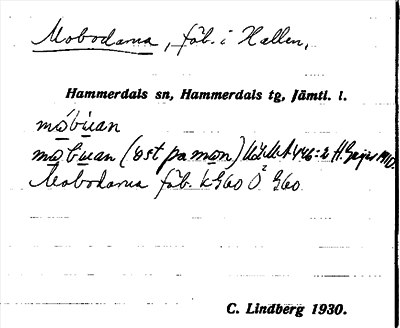 Mobodarna, fäb. i Hallen,
Hammerdals sn, Hammerdals tg, Jämtl. l.
mo̲bu̲an
mo̲bu̲an (öst på mon) H. Geijer 1910.
Mobodarna fäb. k G60 Ö² G60
C. Lindberg 1930.